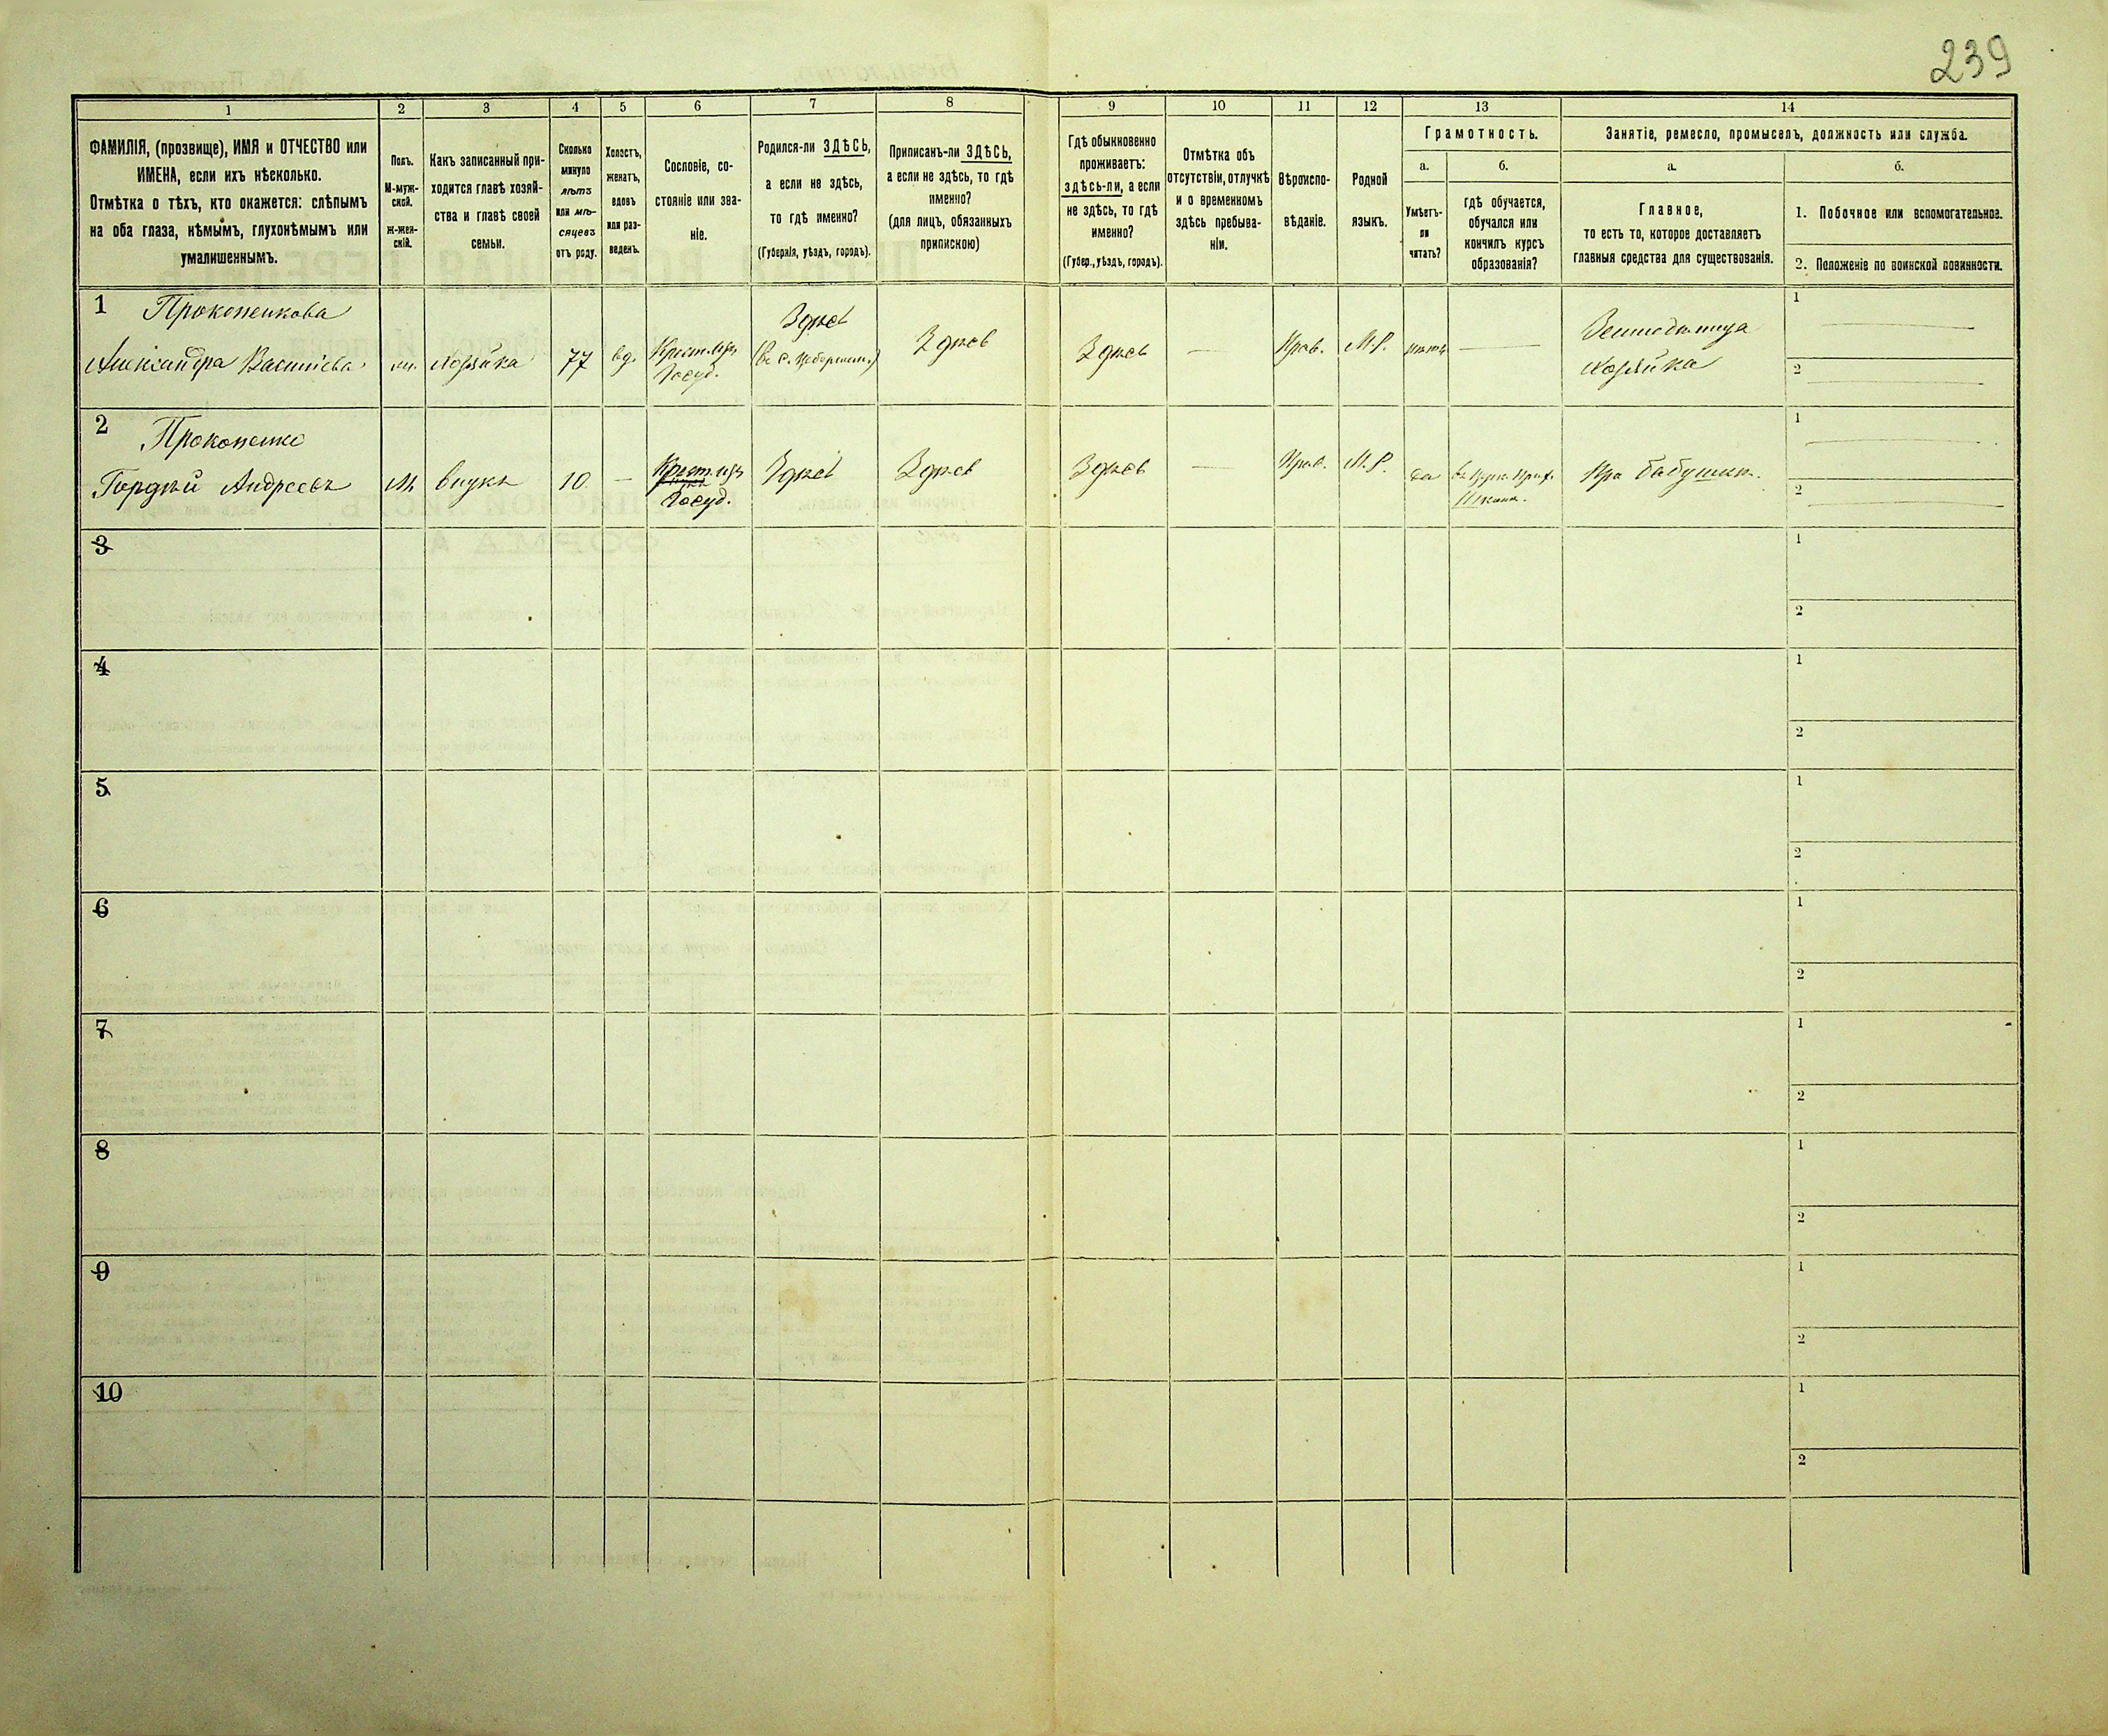 239
1
2
3
4
5
6
7
8
9
10
11
12
13
14
ФАМИЛІЯ, (прозвище), ИМЯ и ОТЧЕСТВО или
ИМЕНА, если ихъ нѣсколько.
Отмѣтка о тѣхъ, кто окажется: слѣпымъ
на оба глаза, нѣмымъ, глухонѣмымъ или
умалишеннымъ.
Полъ.
М-муж-
ской.
ж-жен-
скій.
Какъ записанный при-
ходится главѣ хозяй-
ства и главѣ своей
семьи.
Сколько
минуло
лѣтъ
или мѣ-
сяцевъ
отъ роду.
Холостъ,
женатъ,
вдовъ
или раз-
веденъ.
Сословіе, со-
стояніе или зва-
ніе.
Родился-ли ЗДѢСЬ,
а если не здѣсь,
то гдѣ именно?
(Губернія, уѣздъ, городъ).
Приписанъ-ли ЗДѢСЬ,
а если не здѣсь, то гдѣ
именно?
(для лицъ, обязанныхъ
припискою)
Гдѣ обыкновенно
проживаетъ:
здѣсь-ли, а если
не здѣсь, то гдѣ
именно?
(Губер., уѣздъ, городъ).
Отмѣтка объ
отсутствіи, отлучкѣ
и о временномъ
здѣсь пребыва-
ніи.
Вѣроиспо-
вѣданіе.
Родной
языкъ.
Грамотность.
а.
Умѣетъ-
ли
читать?
б.
гдѣ обучается,
обучался или
кончилъ курсъ
образованія?
Занятіе, ремесло, промыселъ, должность или служба.
а.
Главное,
то есть то, которое доставляетъ
главныя средства для существованія.
б.
1. Побочное или вспомогательное.
2. Положеніе по воинской повинности.
1
Прокопенкова
Александра Васильева
ж.
хозяйка
77
вд.
Крест. изъ
Госуд.
Здѣсь
Здѣсь
Здѣсь
—
Прав.
М.Р.
нѣтъ
—
Земледѣлица
хозяйка
1
2
2
Прокопенко
Гордѣй Андреевъ
М
внукъ
10
—
Крест. изъ
Госуд.
Здѣсь
Здѣсь
Здѣсь
—
Прав.
М.Р.
да
При бабушкѣ.
1
2
3
1
2
4
1
2
5
1
2
6
1
2
7
1
2
8
1
2
9
1
2
10
1
2